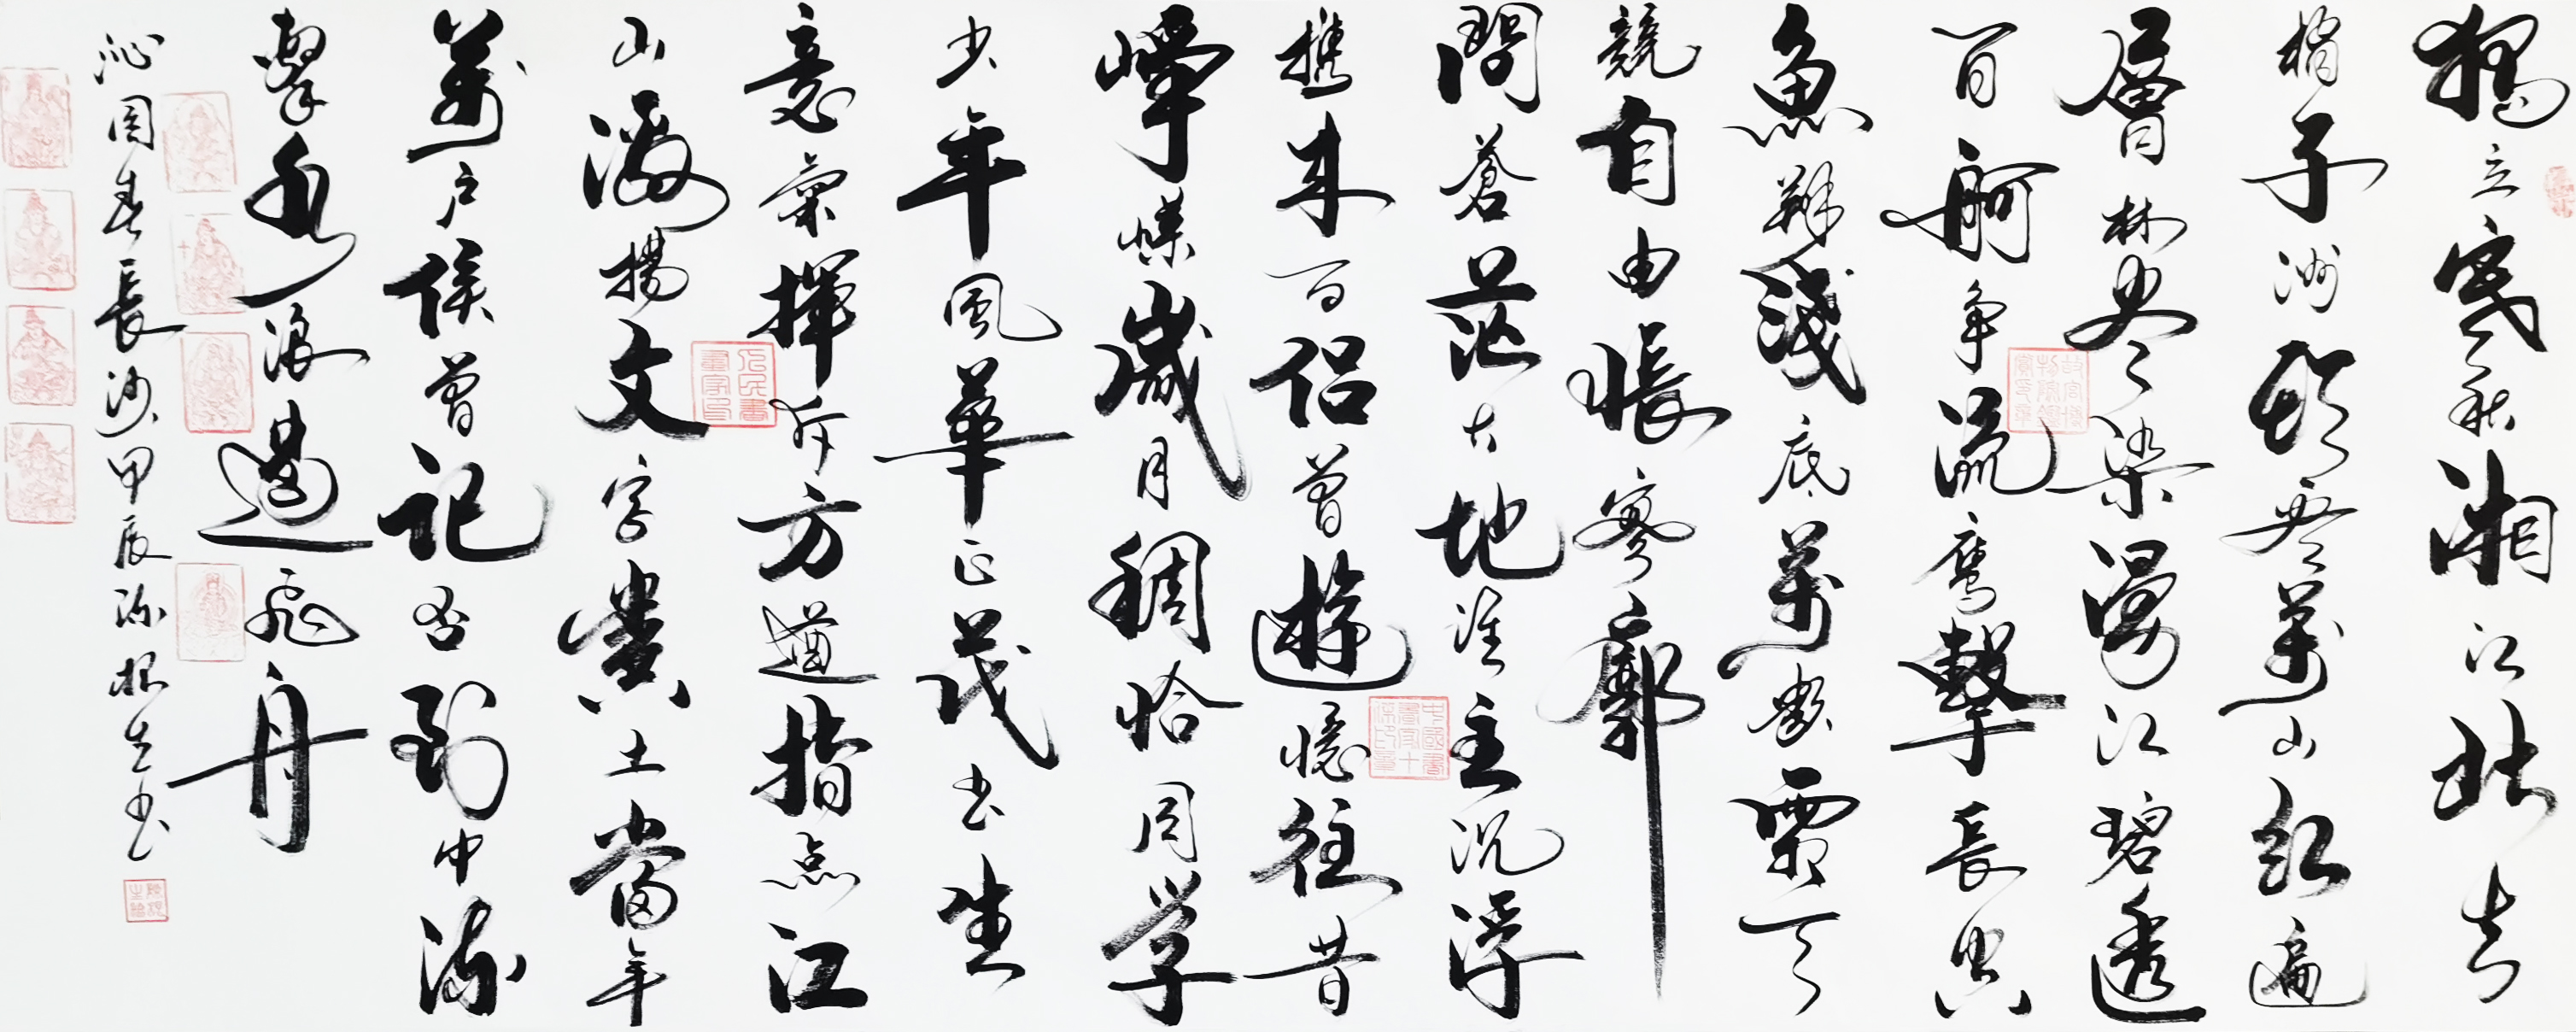 獨立寒秋湘江北去
橘子洲头看萬山紅遍
層林尽染漫江碧透
百舸争流鹰擊長空
魚翔淺底萬類霜天
競自由悵寥廓
問蒼茫大地誰主沉浮
携来百侣曾遊憶往昔
崢嶸歲月稠恰同学
少年風華正茂书生
意氣揮斥方遒指点江
山激揚文字糞土當年
萬户侯曾記否到中流
擊水浪遏飛舟
沁園春長沙甲辰根生书